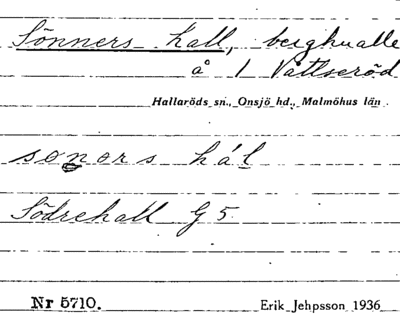 Sönners hall, berghvalle
å 1 Våttseröd
Hallaröds sn., Onsjö hd., Malmöhus län.
sonors hál
Södrehall G5
Nr 5710. Erik Jehpsson 1936